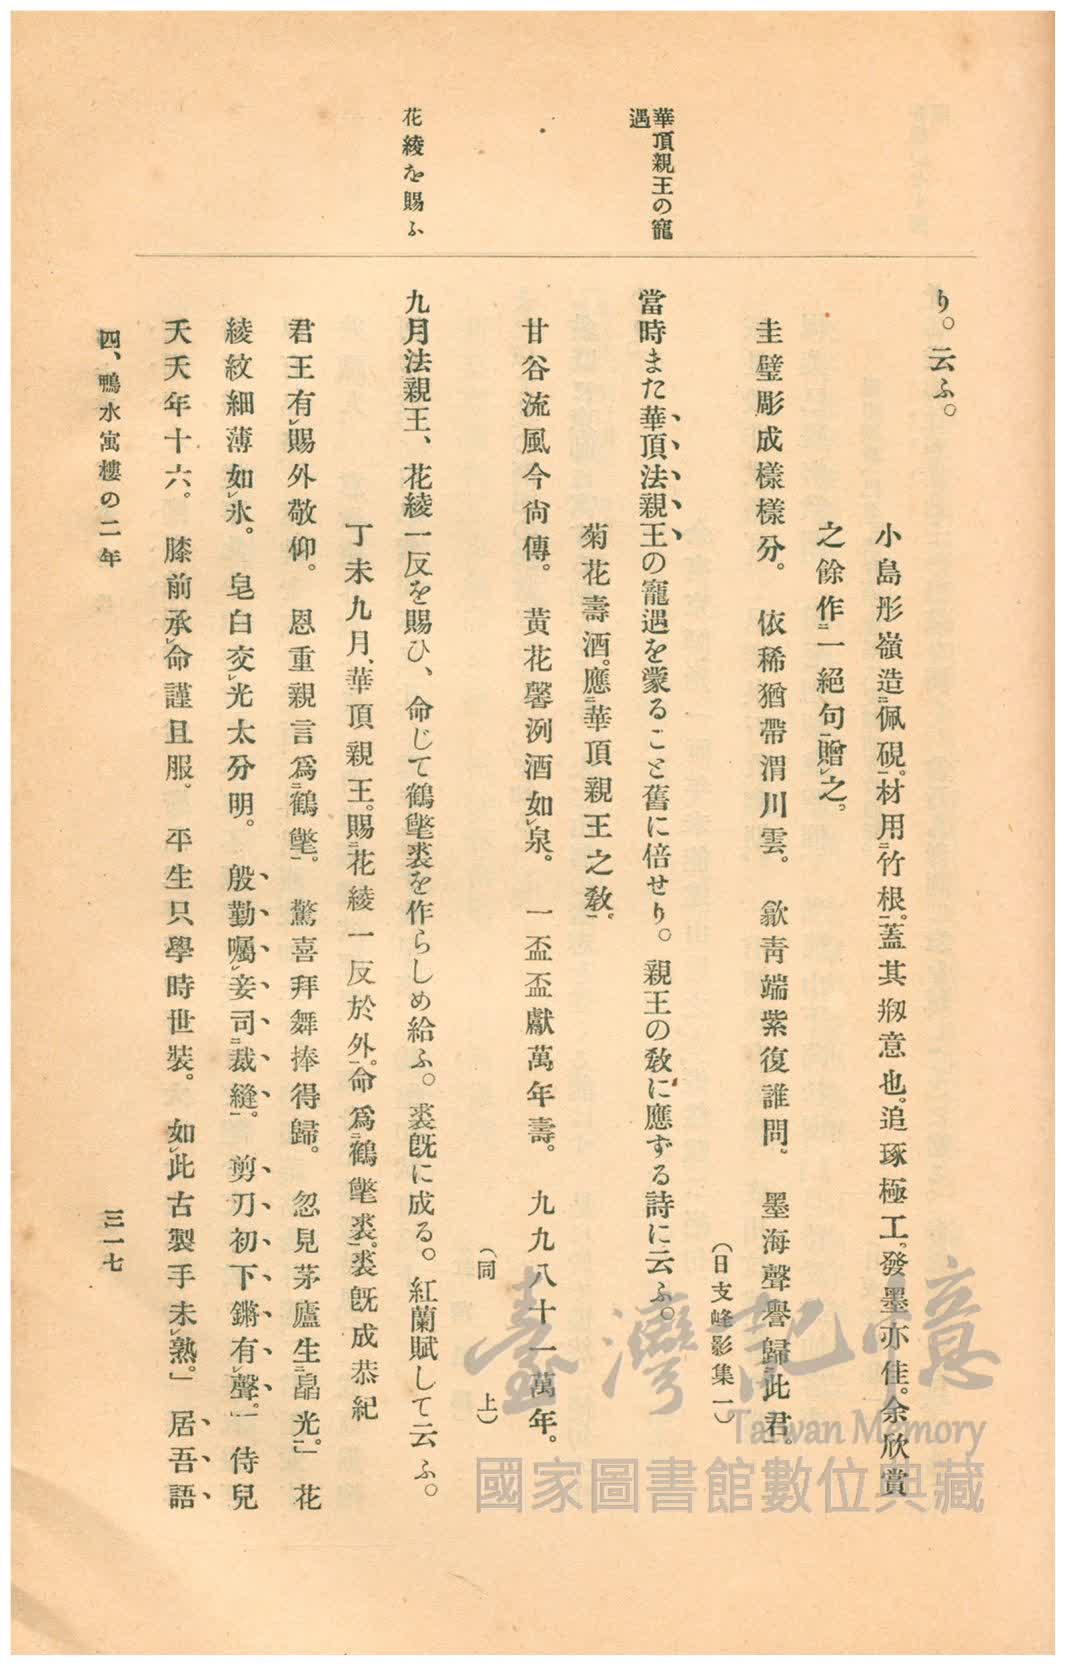 華頂親王の寵
遇
花綾を賜ふ
り。云ふ。
小島彤嶺造二佩硯一。材用二竹根一。蓋其剏意也。追琢極工。發墨亦佳。余欣賞
之餘作二一絕句一贈レ之。
圭璧彫成樣樣分。依稀猶帶渭川雲。歙靑端紫復誰問。墨海聲譽歸二此君一。
(日支峰影集一)
當時また華頂法親王の寵遇を蒙ること舊に倍せり。親王の敎に應ずる詩に云ふ。
菊花壽酒。應二華頂親王之敎一。
甘谷流風今尙傳。黃花馨洌酒如レ泉。一盃盃獻萬年壽。九九八十一萬年。
(同上)
九月法親王、花綾一反を賜ひ、命じて鶴氅裘を作らしめ給ふ。裘旣に成る。紅蘭賦して云ふ。
丁未九月、華頂親王。賜二花綾一反於外一。命爲二鶴氅裘一。裘旣成恭紀
君王有レ賜外敬仰。恩重親言爲二鶴氅一。驚喜拜舞捧得歸。忽見茅廬生二晶光一。」花
綾紋細薄如レ氷。皂白交レ光太分明。殷勤囑レ妾司二裁縫一。剪刀初下鏘有レ聲。」侍兒
夭夭年十六。膝前承レ命謹且服。平生只學時世裝。如レ此古製手未レ熟。」居吾語
四、鴨水寓樓の二年
三一七
臺灣記憶
Taiwan Memory
國家圖書館數位典藏